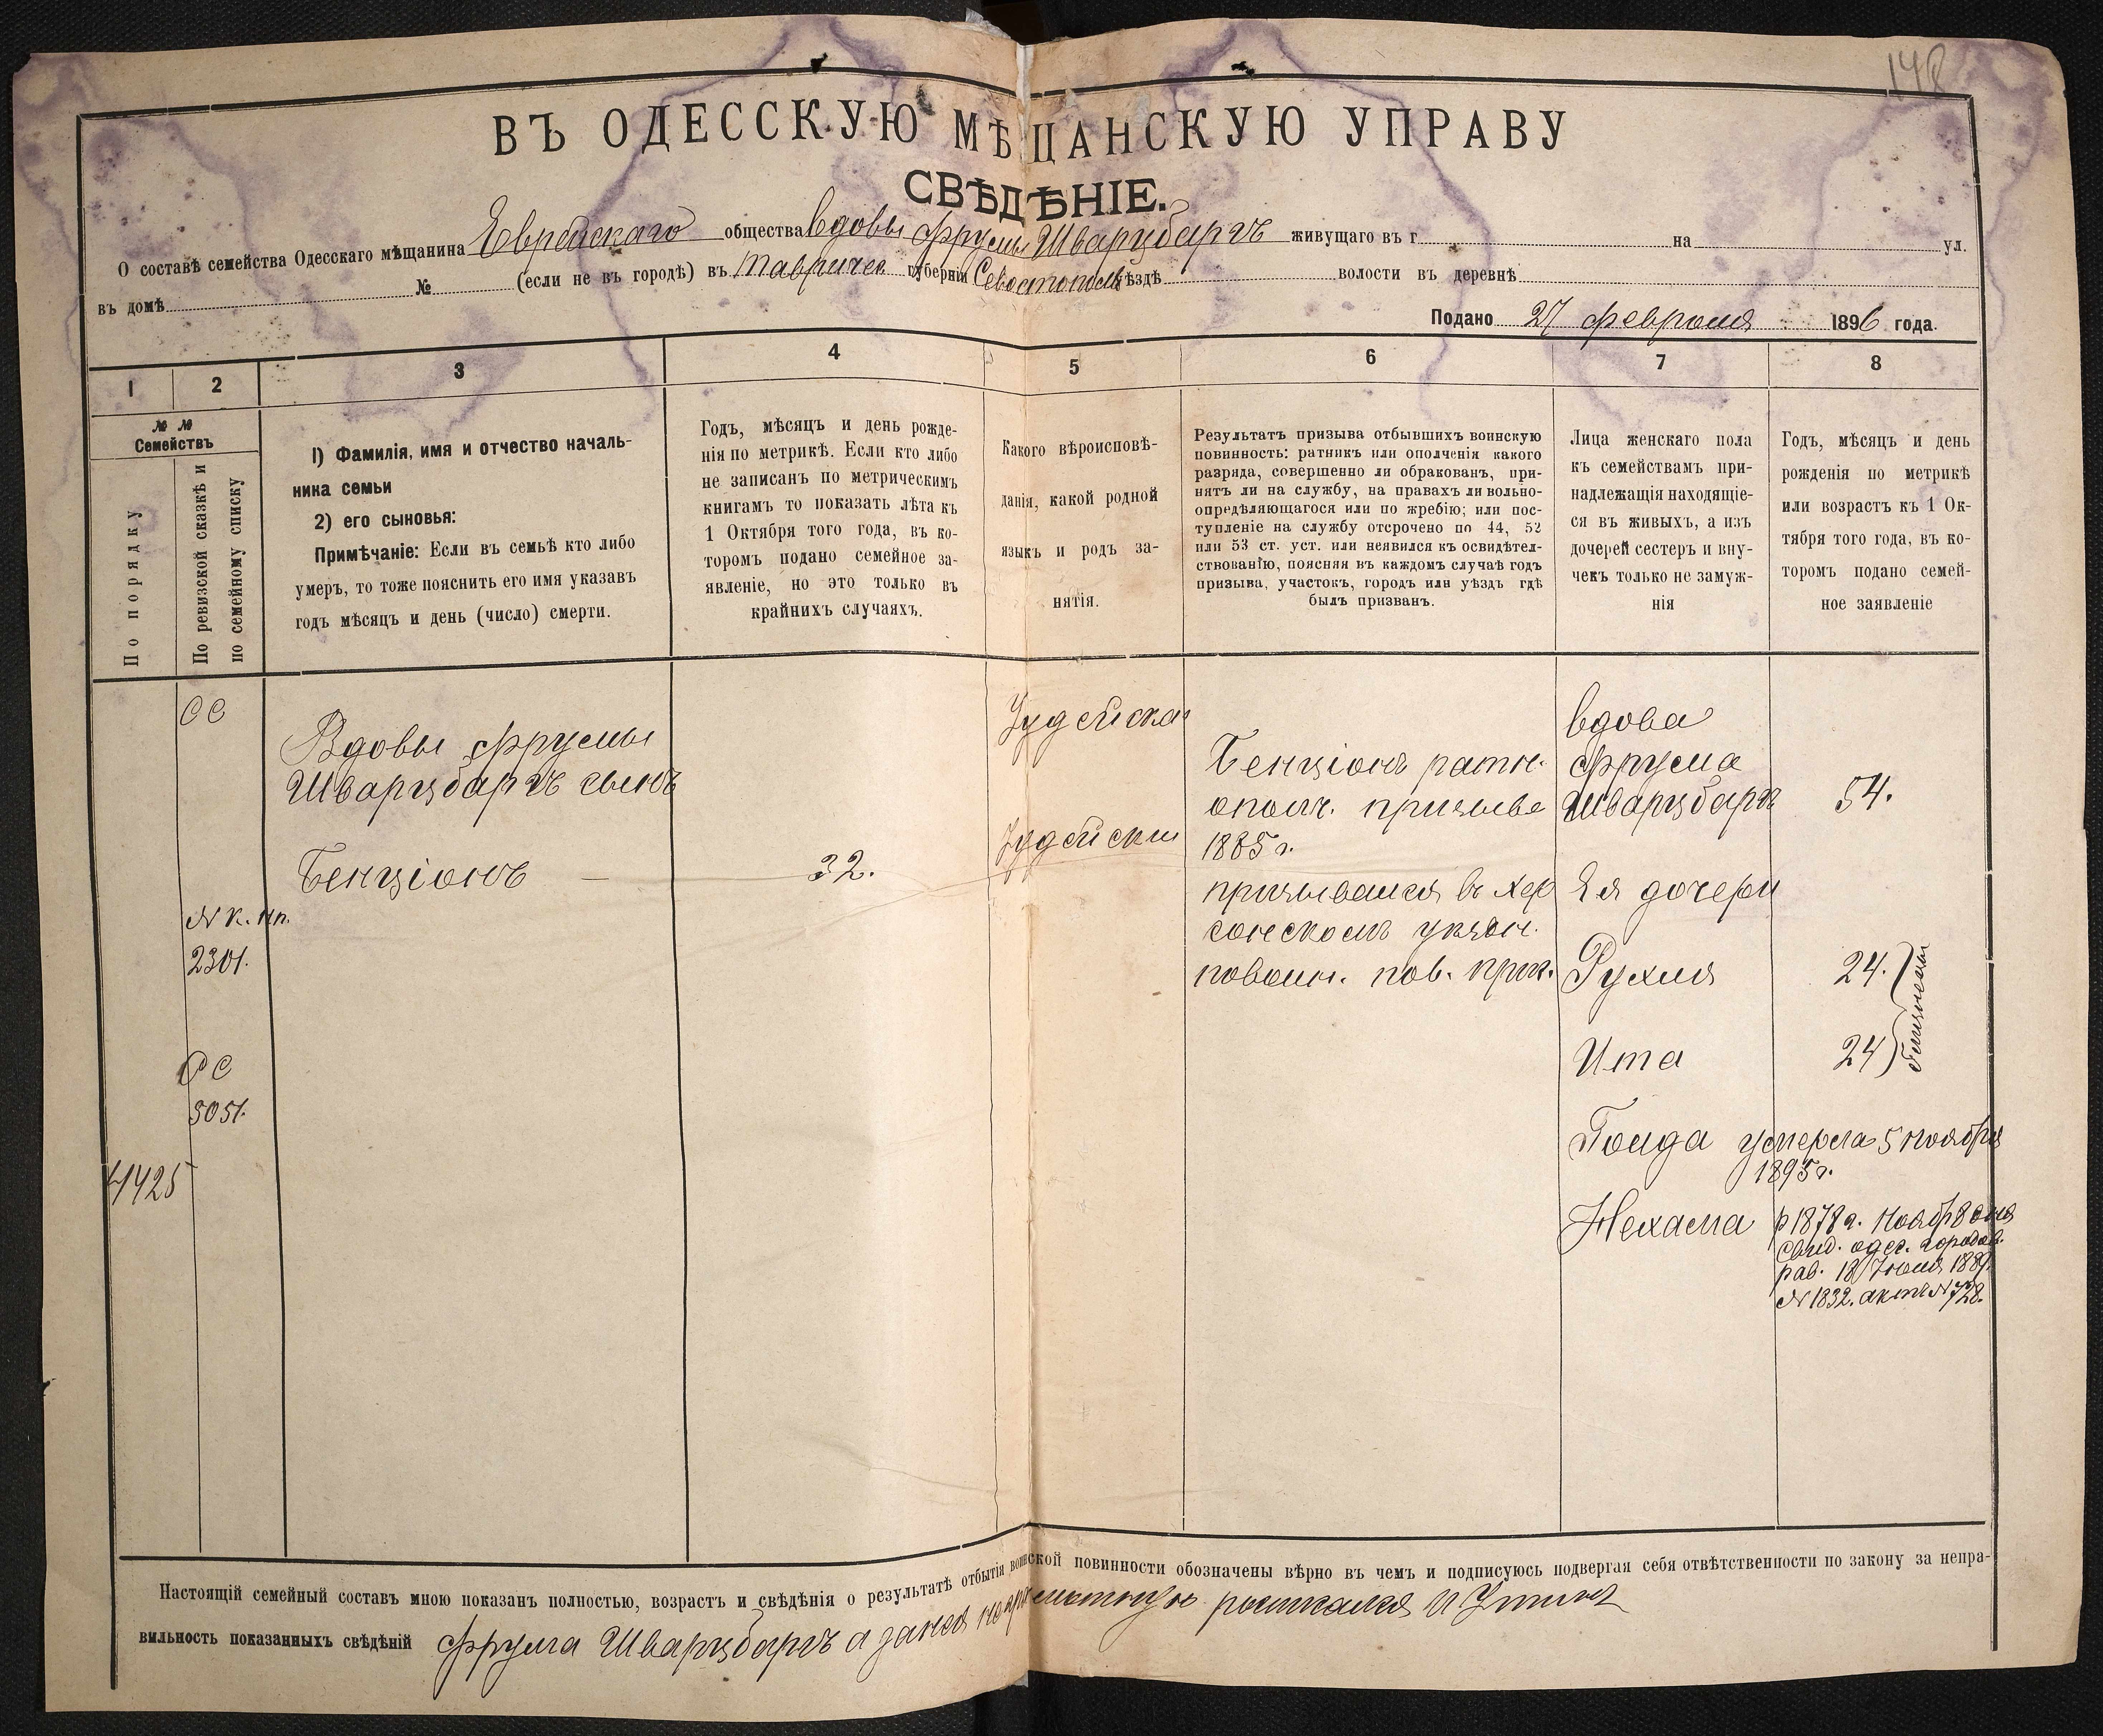 148
ВЪ ОДЕССКУЮ МѢЩАНСКУЮ УПРАВУ
СВѢДѢНІЕ.
О составѣ семейства Одесскаго мѣщанина Еврейскаго общества вдовы Фрумы Шварцбаргъ живущаго въ г. на ул.
въ домѣ № (если не въ городѣ) въ Тавричес губерніи Севостополь уѣздѣ волости въ деревнѣ
Подано 27 февраля 1896 года.
1 2 3 4 5 6 7 8
№ №
Семействъ
По порядку
По ревизской сказкѣ и
по семейному списку
1) Фамилія, имя и отчество началь-
ника семьи
2) его сыновья:
Примѣчаніе: Если въ семьѣ кто либо
умеръ, то тоже пояснить его имя указавъ
годъ мѣсяцъ и день (число) смерти.
Годъ, мѣсяцъ и день рожде-
нія по метрикѣ. Если кто либо
не записанъ по метрическимъ
книгамъ то показать лѣта къ
1 Октября того года, въ ко-
торомъ подано семейное за-
явленіе, но это только въ
крайнихъ случаяхъ.
Какого вѣроисповѣ-
данія, какой родной
языкъ и родъ за-
нятія.
Результатъ призыва отбывшихъ воинскую
повинность: ратникъ или ополченія какого
разряда, совершенно ли обракованъ, при-
нятъ ли на службу, на правахъ ли вольно-
опредѣляющагося или по жребію; или пос-
тупленіе на службу отсрочено по 44, 52
или 53 ст. уст. или неявился къ освидѣтел-
ствованію, поясняя въ каждомъ случаѣ годъ
призыва, участокъ, городъ или уѣздъ гдѣ
былъ призванъ.
Лица женскаго пола
къ семействамъ при-
надлежащія находящіе-
ся въ живыхъ, а изъ
дочерей сестеръ и вну-
чекъ только не замуж-
нія
Годъ, мѣсяцъ и день
рожденія по метрикѣ
или возрастъ къ 1 Ок-
тября того года, въ ко-
торомъ подано семей-
ное заявленіе
СС
№ к. нп.
2301.
СС
5051.
4425
Вдовы Фрумы
Шварцбаргъ сынъ
Бенціонъ —
32.
Іудейска
Іудейски
Бенціонъ ратн.
ополч. призыва
1885 г.
призывался въ Хер
сонскомъ уѣздн.
повоин. пов. прис.
вдова
Фрума
Шварцбаргъ
54.
Ея дочери
Рухля
24.
Ита
24
близнецы
Голда умерла 5 ноября
1895 г.
Нехама
р 1878 г. Ноябр 8 дня
Свид. одес. городов.
рав. 18 Іюня 1889.
№ 1832. актъ № 728.
Настоящій семейный составъ мною показанъ полностью, возрастъ и свѣдѣнія о результатѣ отбытія воинской повинности обозначены вѣрно въ чемъ и подписуюсь подвергая себя отвѣтственности по закону за непра-
вильность показанныхъ свѣдѣній Фрума Шварцбаргъ а занея неграмотную росписался